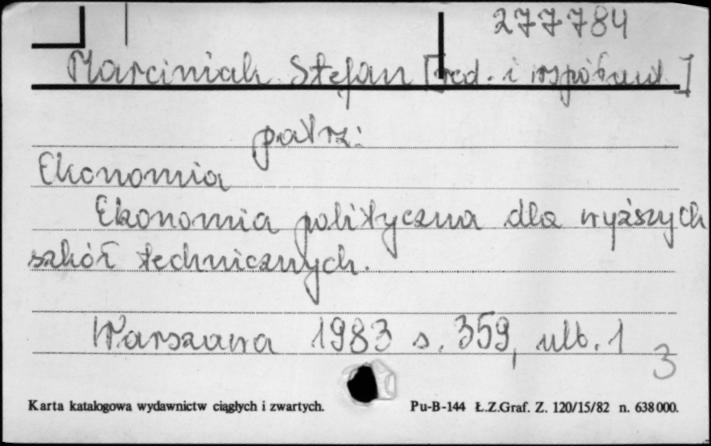 277784
Marciniak Stefan [red. i współaut.]
patrz:
Ekonomia
Ekonomia polityczna dla wyższych
szkół technicznych.
Warszawa 1983 s. 359, ulb. 1
3
Karta katalogowa wydawnictw ciągłych i zwartych. Pu-B-144 Ł.Z.Graf. Z. 120/15/82 n. 638000.